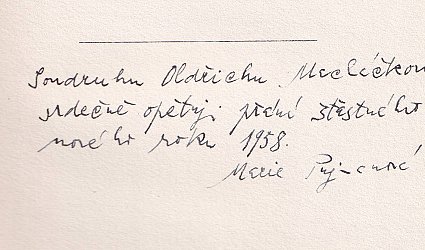 Soudruhu Oldřichu Macháčkov
srdečně opětuji přání šťastného
nového roku 1958.
Marie Pujmanová